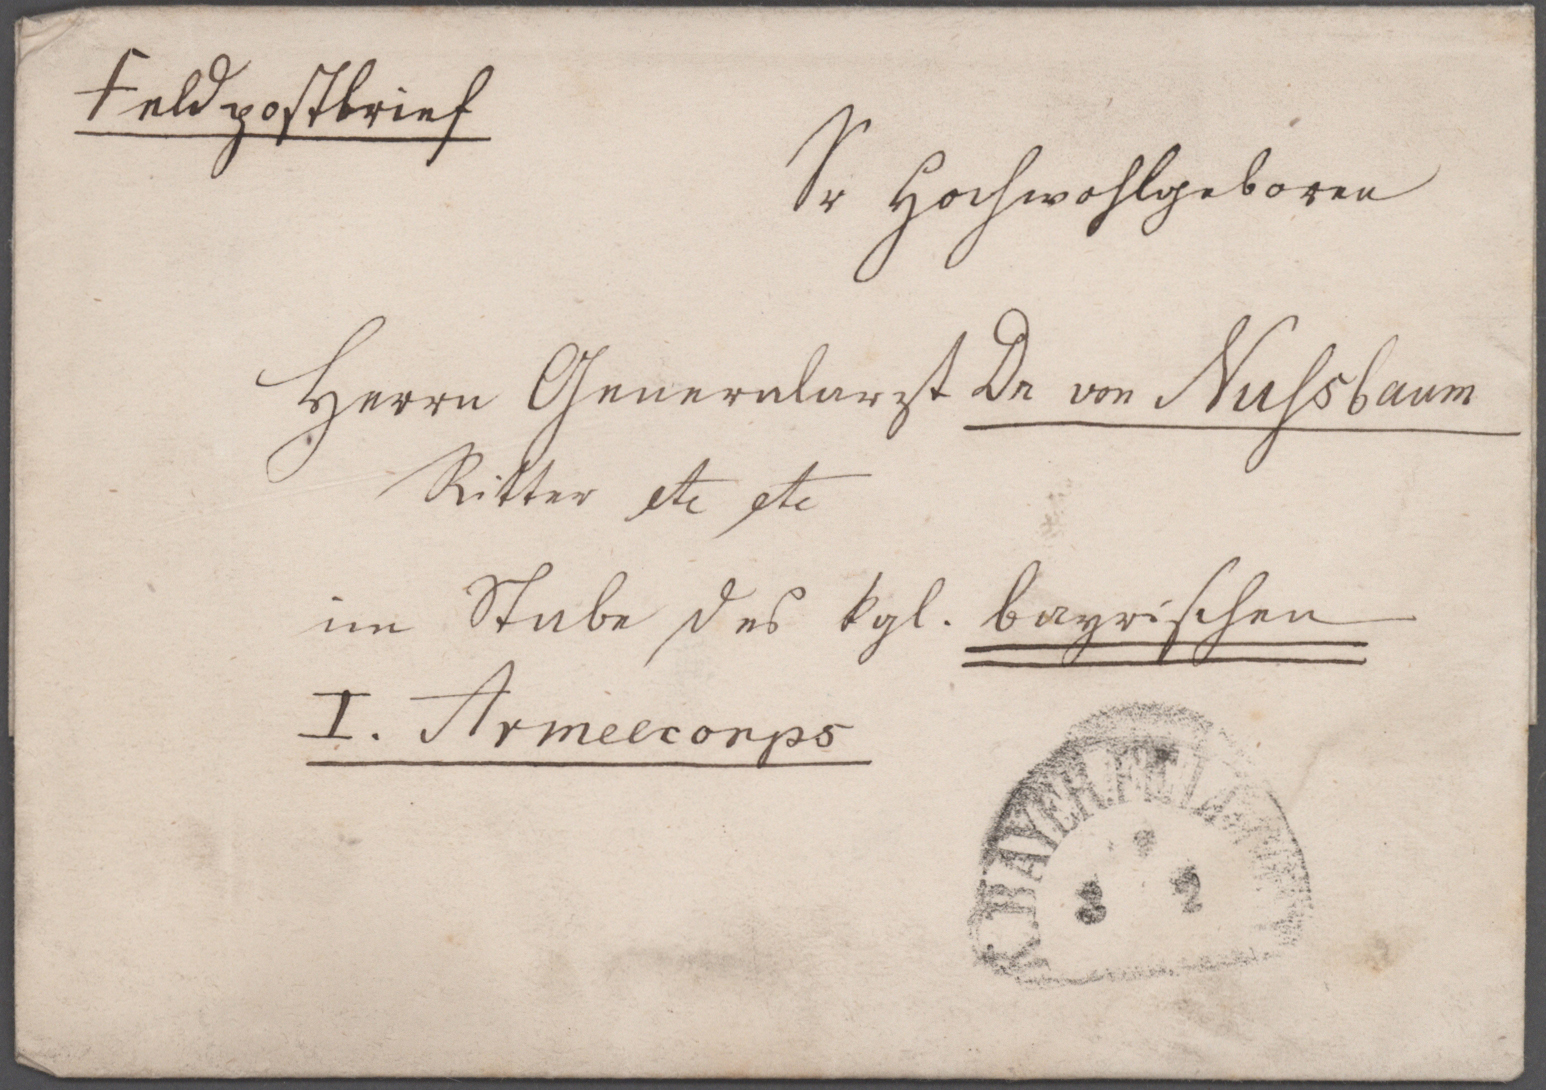 Feldpostbrief
Sr Hochwohlgeboren
Herrn Generalarzt Dr von Nußbaum
Ritter etc etc
im Stabe des kgl. bayrischen
I. Armeecorps
K. BAYER. FELD
3 2